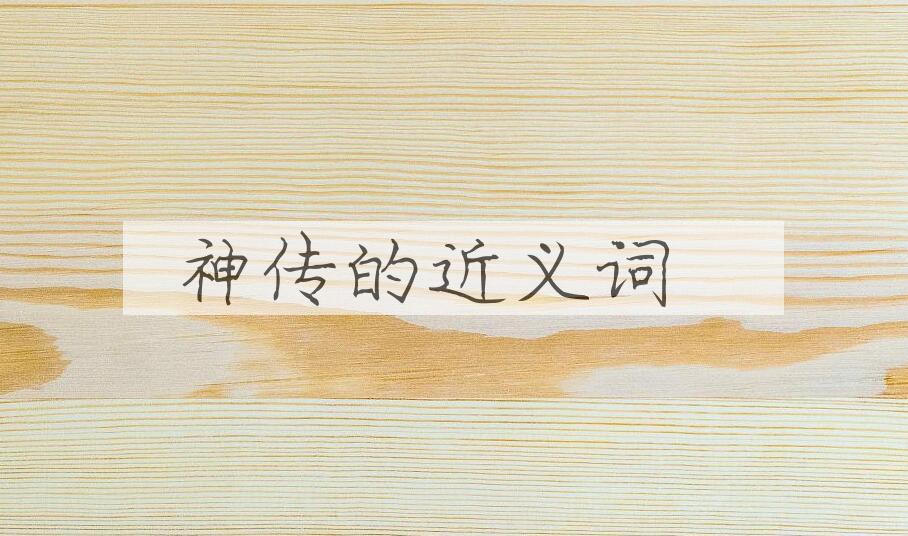 神传的近义词